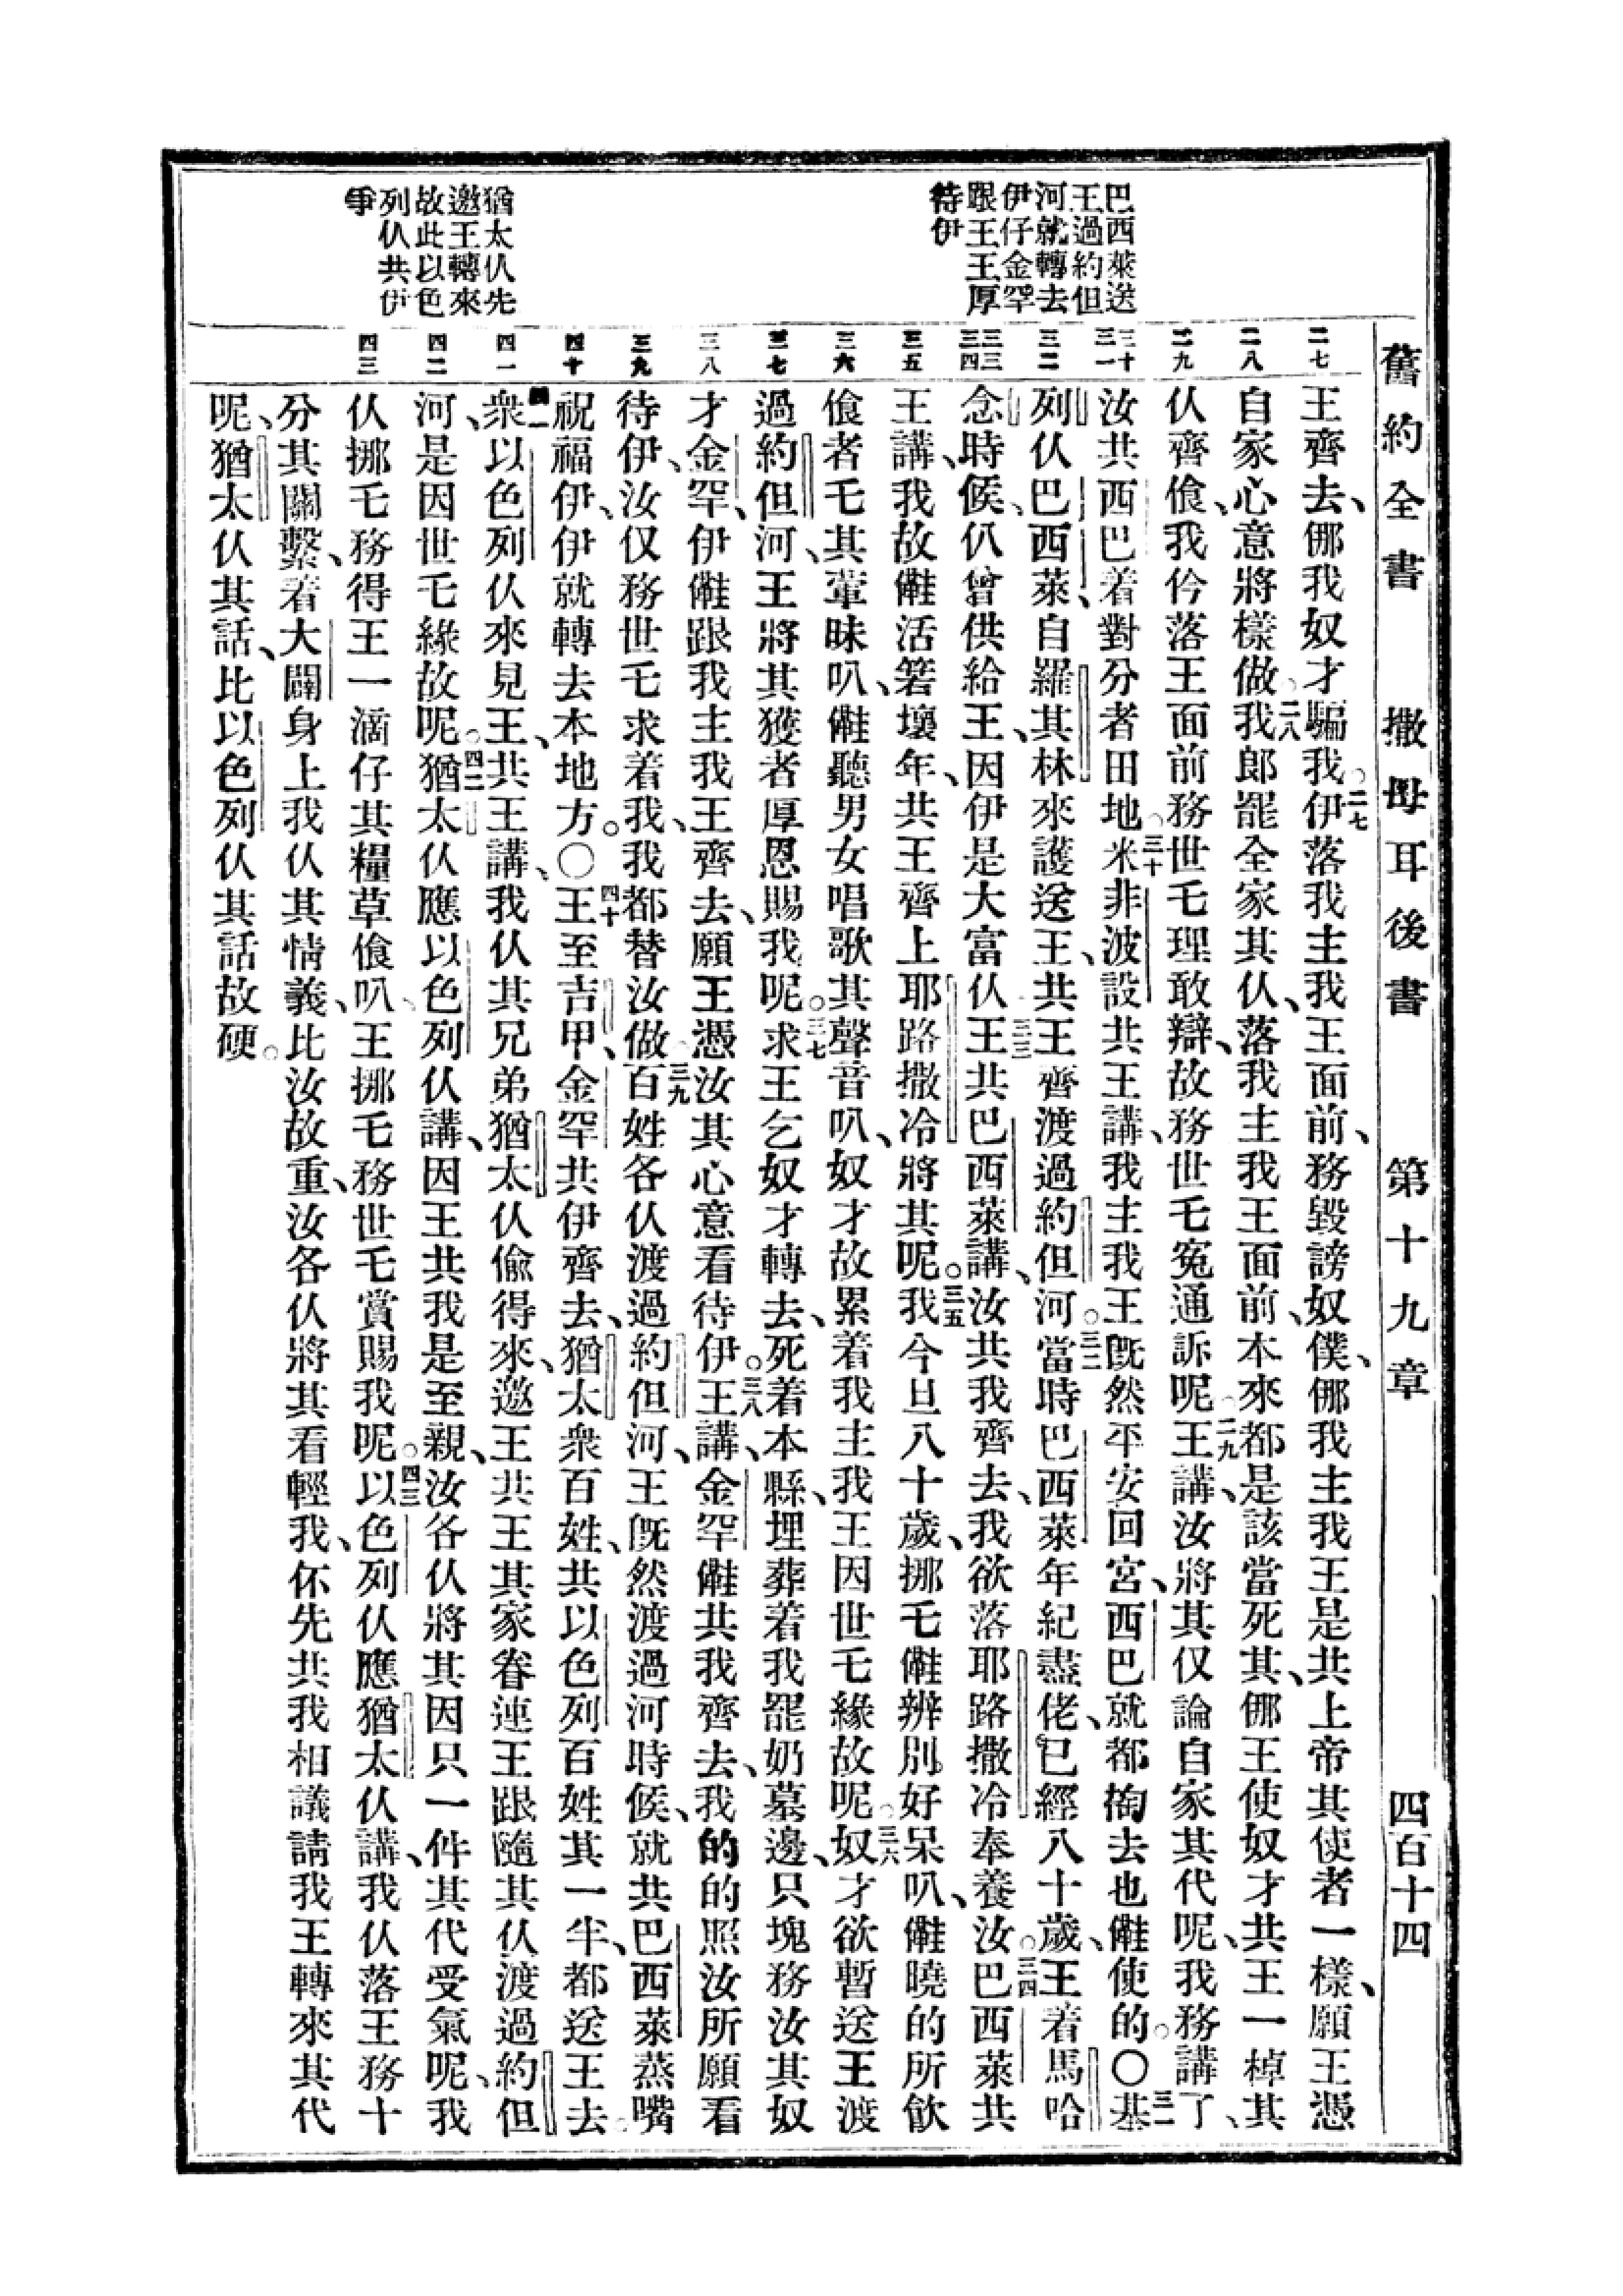 舊約全書 撒母耳後書 第十九章 四百十四
巴西萊送
王過約但
河就轉去
伊仔金罕
跟王王厚
待伊
猶太仈先
邀王轉來
故此以色
列仈共伊
爭
二七
二八
二九
三十 三一
三二
三三 三四
三五
三六
三七
三八
三九
四十
四一
四二
四三
王齊去、𪜶我奴才騙我。二七伊落我主我王面前、務毀謗奴僕、𪜶我主我王是共上帝其使者一樣、願王憑
自家心意將樣做。二八我郎罷全家其仈、落我主我王面前、本來都是該當死其、𪜶王使奴才共王一棹其
仈齊飡、我仱落王面前務世乇理敢辯、故務世乇寃通訴呢。二九王講、汝將其仅論自家其代呢、我務講了、
汝共西巴着對分者田地。三十米非波設共王講、我主我王旣然平安回宮、西巴就都掏去也𣍐使的。〇三一基
列仈巴西萊、自羅其林來護送王、共王齊渡過約但河。三二當時巴西萊年紀盡佬、已經八十歲、王着馬哈
念時候、仈曾供給王、因伊是大富仈三三王共巴西萊講、汝共我齊去、我欲落耶路撒冷奉養汝。三四巴西萊共
王講、我故𣍐活箬壞年、共王齊上耶路撒冷將其呢。三五我今旦八十歲、挪乇𣍐辨別好呆叭、𣍐曉的所飮
飡者乇其葷昧叭、𣍐聽男女唱歌其聲音叭、奴才故累着我主我王因世乇緣故呢。三六奴才欲暫送王渡
過約但河、王將其獲者厚恩賜我呢。三七求王乞奴才轉去、死着本縣、埋葬着我罷奶墓邊、只塊務汝其奴
才金罕、伊𣍐跟我主我王齊去、願王憑汝其心意看待伊。三八王講、金罕𣍐共我齊去、我的的照汝所願看
待伊、汝仅務世乇求着我、我都替汝做三九百姓各仈渡過約但河、王旣然渡過河時候、就共巴西萊蒸嘴
祝福伊、伊就轉去本地方。〇四十王至吉甲、金罕共伊齊去、猶太衆百姓、共以色列百姓其一半、都送王去。
四一衆以色列仈來見王、共王講、我仈其兄弟猶太仈偸得來、邀王共王其家眷連王跟隨其仈渡過約但
河、是因世乇緣故呢。四二猶太仈應以色列仈講、因王共我是至親、汝各仈將其因只一件其代受氣呢、我
仈挪乇務得王一滴仔其糧草飡叭、王挪乇務世乇賞賜我呢。四三以色列仈應猶太仈講、我仈落王務十
分其關繫、着大闢身上我仈其情義、比汝故重、汝各仈將其看輕我、伓先共我相議請我王轉來其代
呢、猶太仈其話、比以色列仈其話故硬。